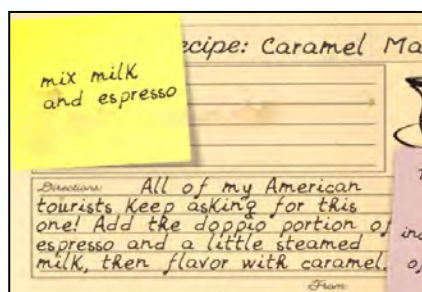 ecipe: Caramel Ma
mix milk
and espresso
Directions: All of my American
tourists keep asking for this
one! Add the doppio portion of
espresso and a little steamed
milk, then flavor with caramel.
From
of